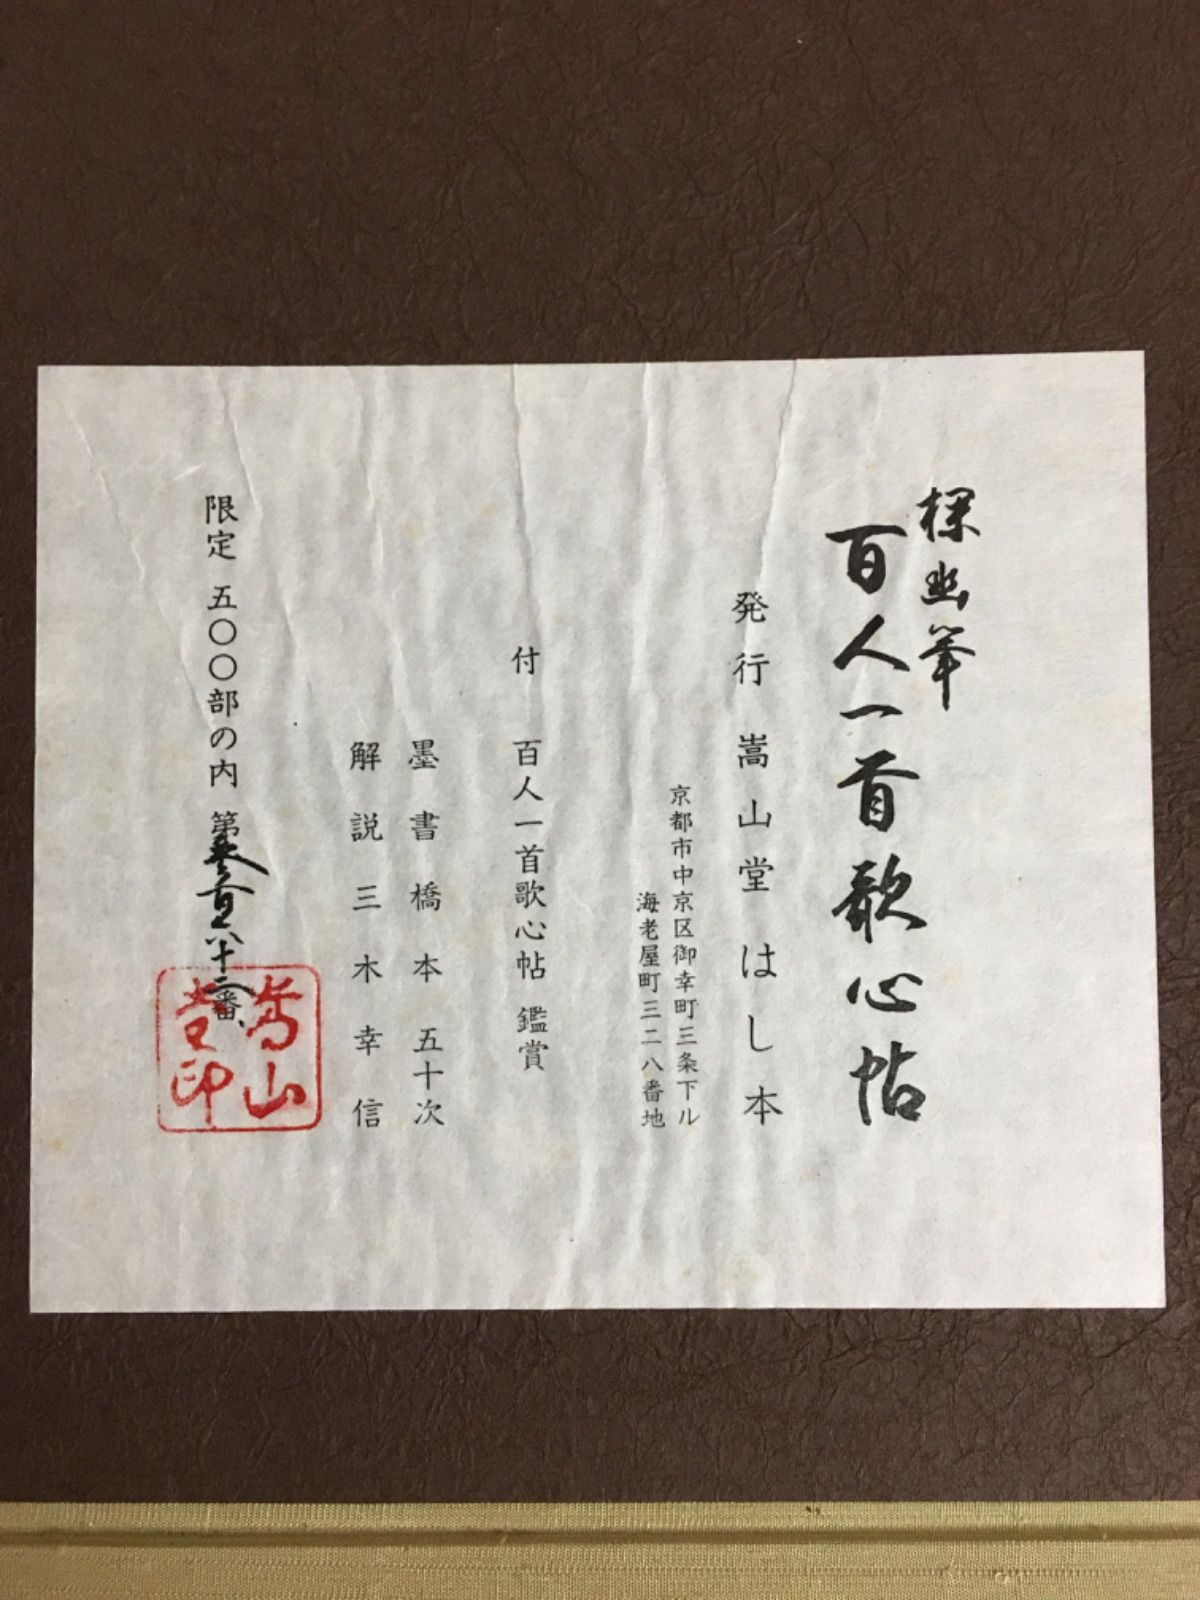 筆
百人一首歌心帖
発行 嵩山堂 はし本
京都市中京区御幸町三条下ル
海老屋町三二八番地
付 百人一首歌心帖 鑑賞
墨書 橋本 五十次
解説 三木 幸信
限定 五〇〇部の内 第参百六十二番
嵩山
堂印